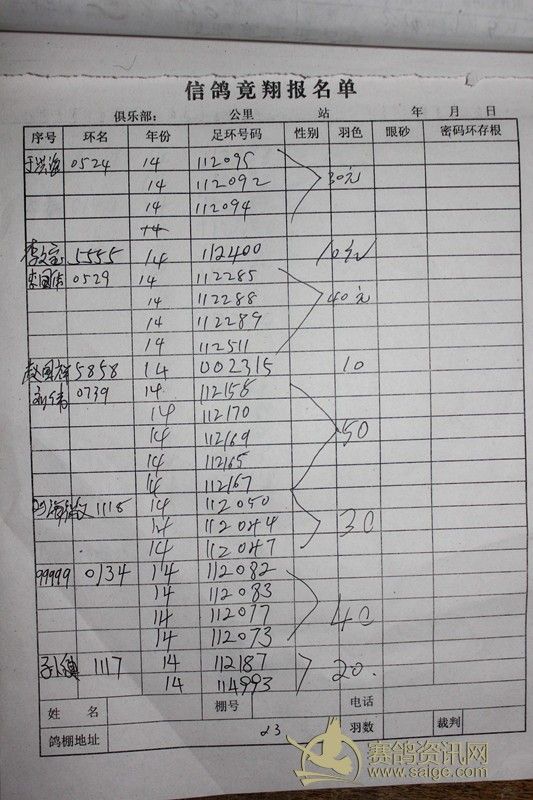 信鸽竟翔报名单
俱乐部： 公里 站 年 月 日
序号 环名 年份 足环号码 性别 羽色 眼砂 密码环存根
0524 14 112095
14 112092 30元
14 112094
14
5555 14 112400 10元
0529 14 112285
14 112288 40元
14 112289
14 112511
5858 14 002315 10
0739 14 112158
14 112170
14 112169 50
14 112165
14 112167
1115 14 112050
14 112044 30
14 112047
99999 0134 14 112082
14 112083
14 112077 40
14 112073
1117 14 112187 20.
14 114993
姓名 棚号 电话
鸽棚地址 23 羽数 裁判
赛鸽资讯网
www.saige.com